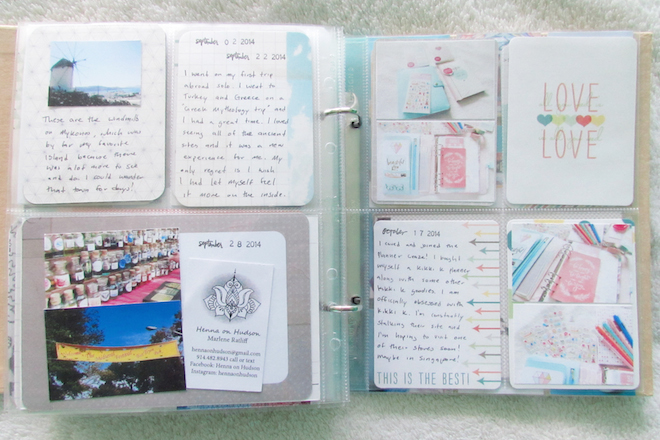 These are the windmills
on Mykonos, which was
by far my favorite
island because there
was a lot more to see
and do. I could wander
that town for days!
september 02 2014
september 22 2014
I went on my first trip
abroad solo. I went to
Turkey and Greece on a
"Greek Mythology trip" and
I had a great time. I loved
seeing all of the ancient
sites and it was a new
experience for me. My
only regret is I wish
I had let myself feel
it more on the inside.
september 28 2014
Henna on Hudson
Marlene Railoff
hennaonhudson@gmail.com
914.482.8943 call or text
Facebook: Henna on Hudson
Instagram: hennaonhudson
LOVE
LOVE
october 17 2014
I caved and joined the
planner craze! I bought
myself a Kikki.K planner
along with some other
Kikki.K goodies. I am
officially obsessed with
Kikki.K. I'm constantly
stalking their site and
I'm hoping to visit one
of their stores soon!
Maybe in Singapore!
THIS IS THE BEST!